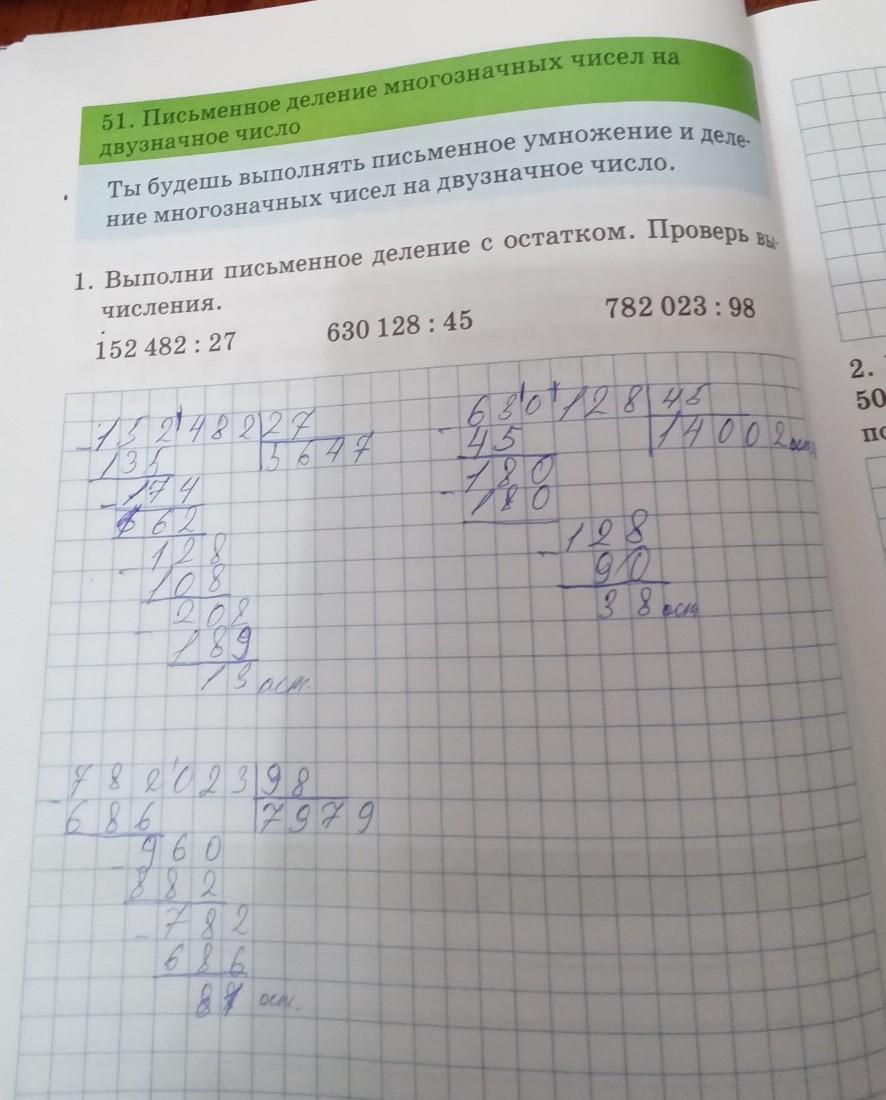 51. Письменное деление многозначных чисел на
двузначное число
Ты будешь выполнять письменное умножение и деле-
ние многозначных чисел на двузначное число.
1. Выполни письменное деление с остатком. Проверь вы-
числения.
152 482 : 27 630 128 : 45 782 023 : 98
152'482 27
135 5647
174
162
128
108
208
189
13 ост.
630128 45
45 14002 ост
180
180
128
90
38 ост
782'023 98
686 7979
960
882
782
686
ост.
2.
50
по